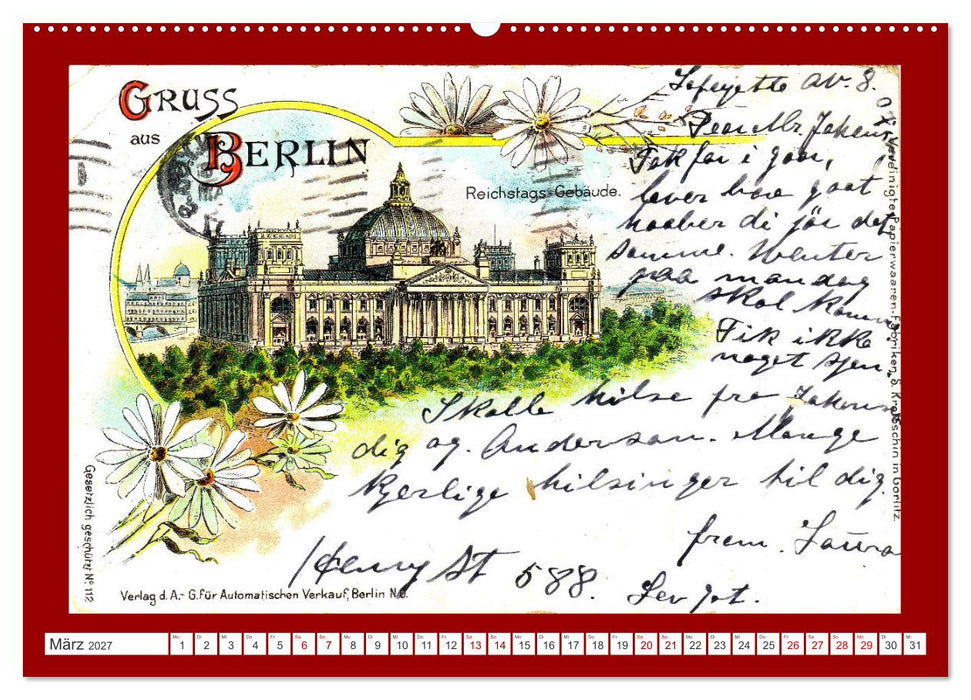 GRUSS
aus
BERLIN
Reichstags-Gebäude.
Lafayette Av. 8.
Dear Mr. Jakens
Tak for i gaar,
lever bare goot
haaber di jör det
samme. Wenter
paa mandag
skal komme
Fik ikke
noget sjen.
Skalle hilse fra Jakens
dig og Anderson. Mange
Kjerlige hilsinger til dig.
from. Laura
Henry St 588.
Vereinigte Papierwaaren-Fabriken, S. Krotoschin in Görlitz.
Gesetzlich geschützt Nº 112
Verlag d. A.-G. für Automatischen Verkauf, Berlin N.O.
März 2027
Mo Di Mi Do Fr Sa So Mo Di Mi Do Fr Sa So Mo Di Mi Do Fr Sa So Mo Di Mi Do Fr Sa So Mo Di Mi
1 2 3 4 5 6 7 8 9 10 11 12 13 14 15 16 17 18 19 20 21 22 23 24 25 26 27 28 29 30 31